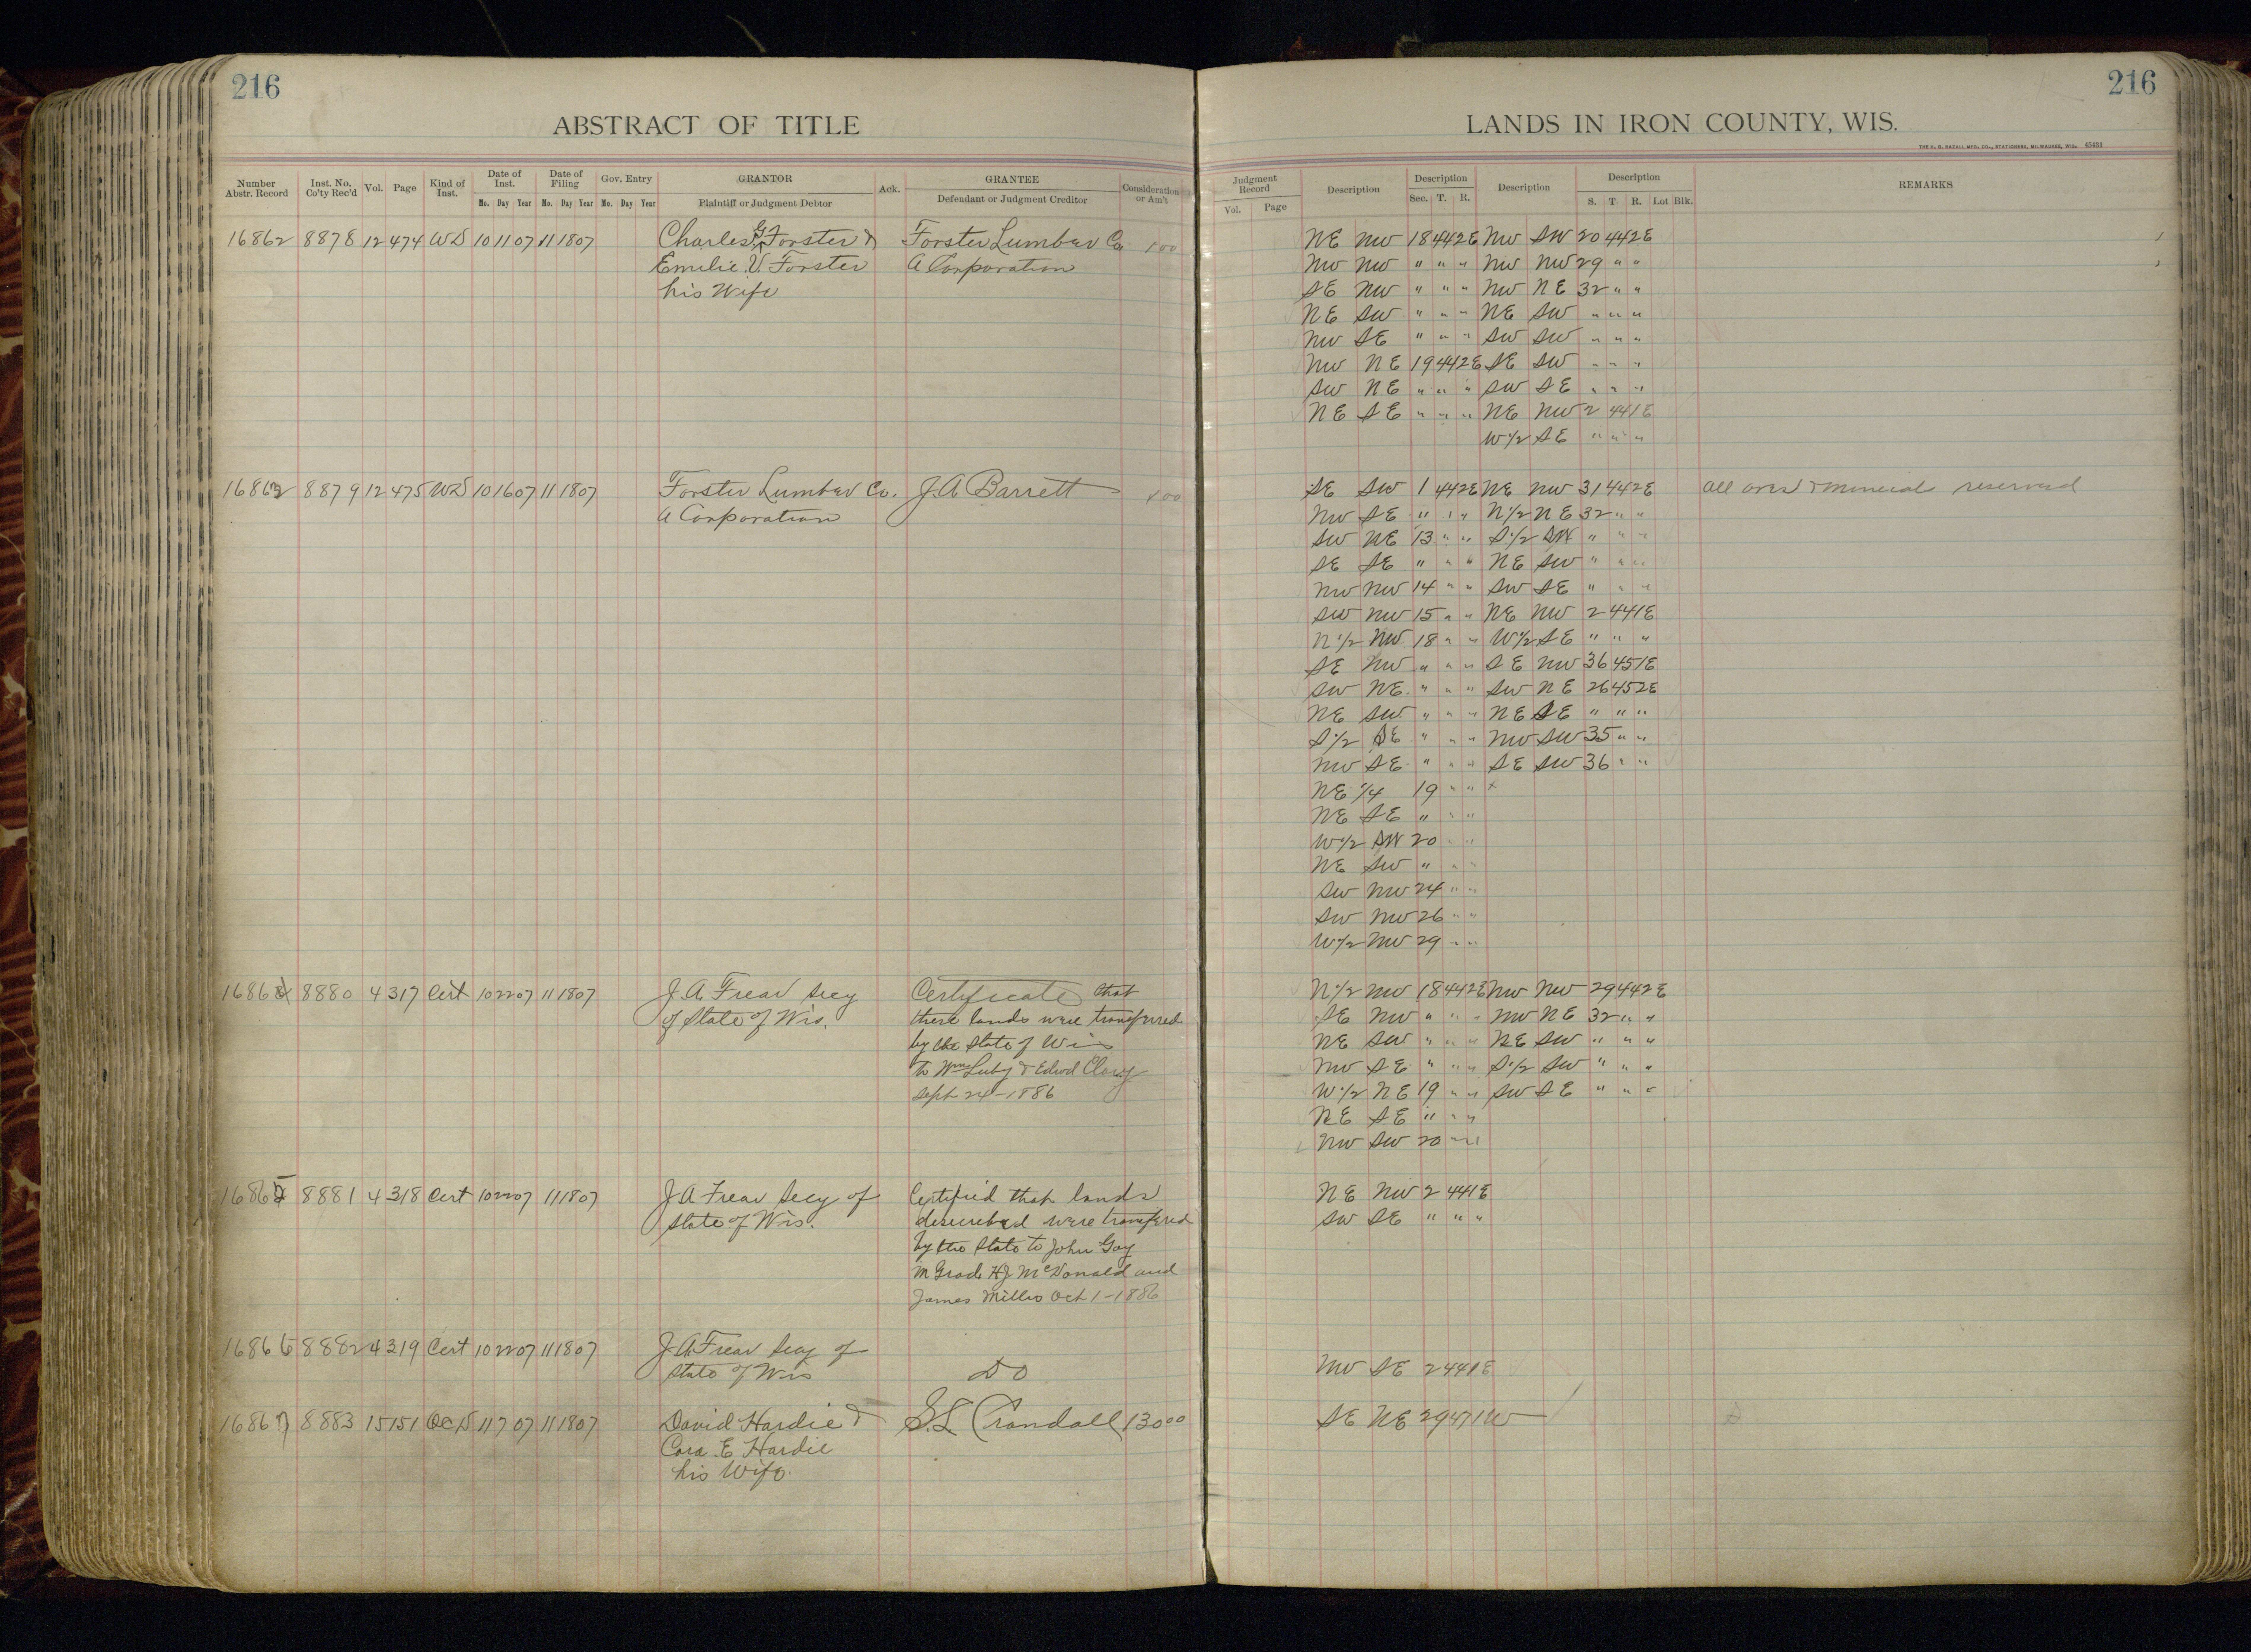 216
216
ABSTRACT OF TITLE
LANDS IN IRON COUNTY, WIS.
Number Abstr. Record Inst. No. Co'ty Rec'd Vol. Page Kind of Inst. Date of Inst. Mo. Day Year Date of Filing Mo. Day Year Gov. Entry Mo. Day Year GRANTOR Plaintiff or Judgment Debtor Ack. GRANTEE Defendant or Judgment Creditor Consideration or Am't
Judgment Record Vol. Page Description Description Sec. T. R. Description Description S. T. R. Lot Blk. REMARKS
16862 8878 12 474 WD 10 11 07 11 18 07 Charles G Forster & Forster Lumber Co 1 00
Emelie V. Forster A Corporation
his Wife
NE NW 18 44 2E NW SW 20 44 2E
NW NW " " " NW NW 29 " "
SE NW " " " NW NE 32 " "
NE SW " " " NE SW " " "
NW SE " " " SW SW " " "
NW NE 19 44 2E SE SW " " "
SW NE " " " SW SE " " "
NE SE " " " NE NW 2 44 1E
W 1/2 SE " " "
16863 8879 12 475 WD 10 16 07 11 18 07 Forster Lumber Co. J.A. Barrett 1 00
A Corporation
SE SW 1 44 2E NE NW 31 44 2E All ores & mineral reserved
NW SE " " " N 1/2 NE 32 " "
SW NE 13 " " S 1/2 SW " " "
SE SE " " " NE SW " " "
NW NW 14 " " SW SE " " "
SW NW 15 " " NE NW 2 44 1E
N 1/2 NW 18 " " W 1/2 SE " " "
SE NW " " " SE NW 36 45 1E
SW NE " " " SW NE 26 45 2E
NE SW " " " NE SE " " "
S 1/2 SE " " " NW SW 35 " "
NW SE " " " SE SW 36 " "
NE 1/4 19 " " x
NE SE " " "
W 1/2 SW 20 " "
NE SW " " "
SW NW 24 " "
SW NW 26 " "
W 1/2 NW 29 " "
16864 8880 4 317 Cert 10 22 07 11 18 07 J A Frear Secy Certificate that
of State of Wis. these lands were transferred
by the State of Wis
to Wm Luby & Edwd
Sept 24-1886
N 1/2 NW 18 44 2E NW NW 29 44 2E
SE NW " " " NW NE 32 " "
NE SW " " " NE SW " " "
NW SE " " " S 1/2 SW " " "
W 1/2 NE 19 " " SW SE " " "
NE SE " " "
NW SW 20 " "
16865 8881 4 318 Cert 10 22 07 11 18 07 J A Frear Secy of Certified that lands
State of Wis. described were transfered
by the State to John Goy
H J McDonald and
James Millis Oct 1-1886
NE NW 2 44 1E
SW SE " " "
16866 8882 4 319 Cert 10 22 07 11 18 07 J A Frear Secy of
State of Wis DO
NW SE 2 44 1E
16867 8883 15 151 QCD 11 7 07 11 18 07 David Hardie & S.L. Crandall 130 00
Cora E Hardie
his Wife.
SE NE 29 47 1W